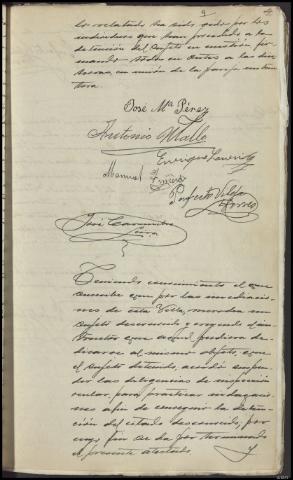 9
lo relatado ha sido oido por los
individuos que han procedido a la
detención del sujeto en cuestión fir-
mando todos en
en unión de la pareja
José Mª Pérez
Antonio Mallo
Enrique
Manuel
Perfecto
José
Teniendo conocimiento el que
suscribe que por las inmediacio-
nes de esta Villa, merodea un
sujeto desconocido y creyendo el ins-
tructor que aquel pudiera de-
dicarse al mismo objeto, que
el sujeto detenido, acordó suspen-
der las diligencias de inspección
ocular, para practicar indagacio-
nes afin de conseguir la deten-
ción del citado desconocido, por
cuyo fin se da por terminado
el presente atestado.